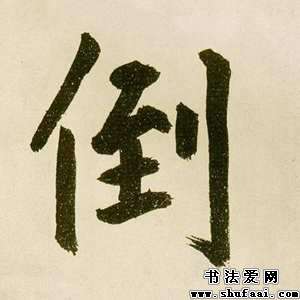 倒
书法爱网
www.shufaai.com